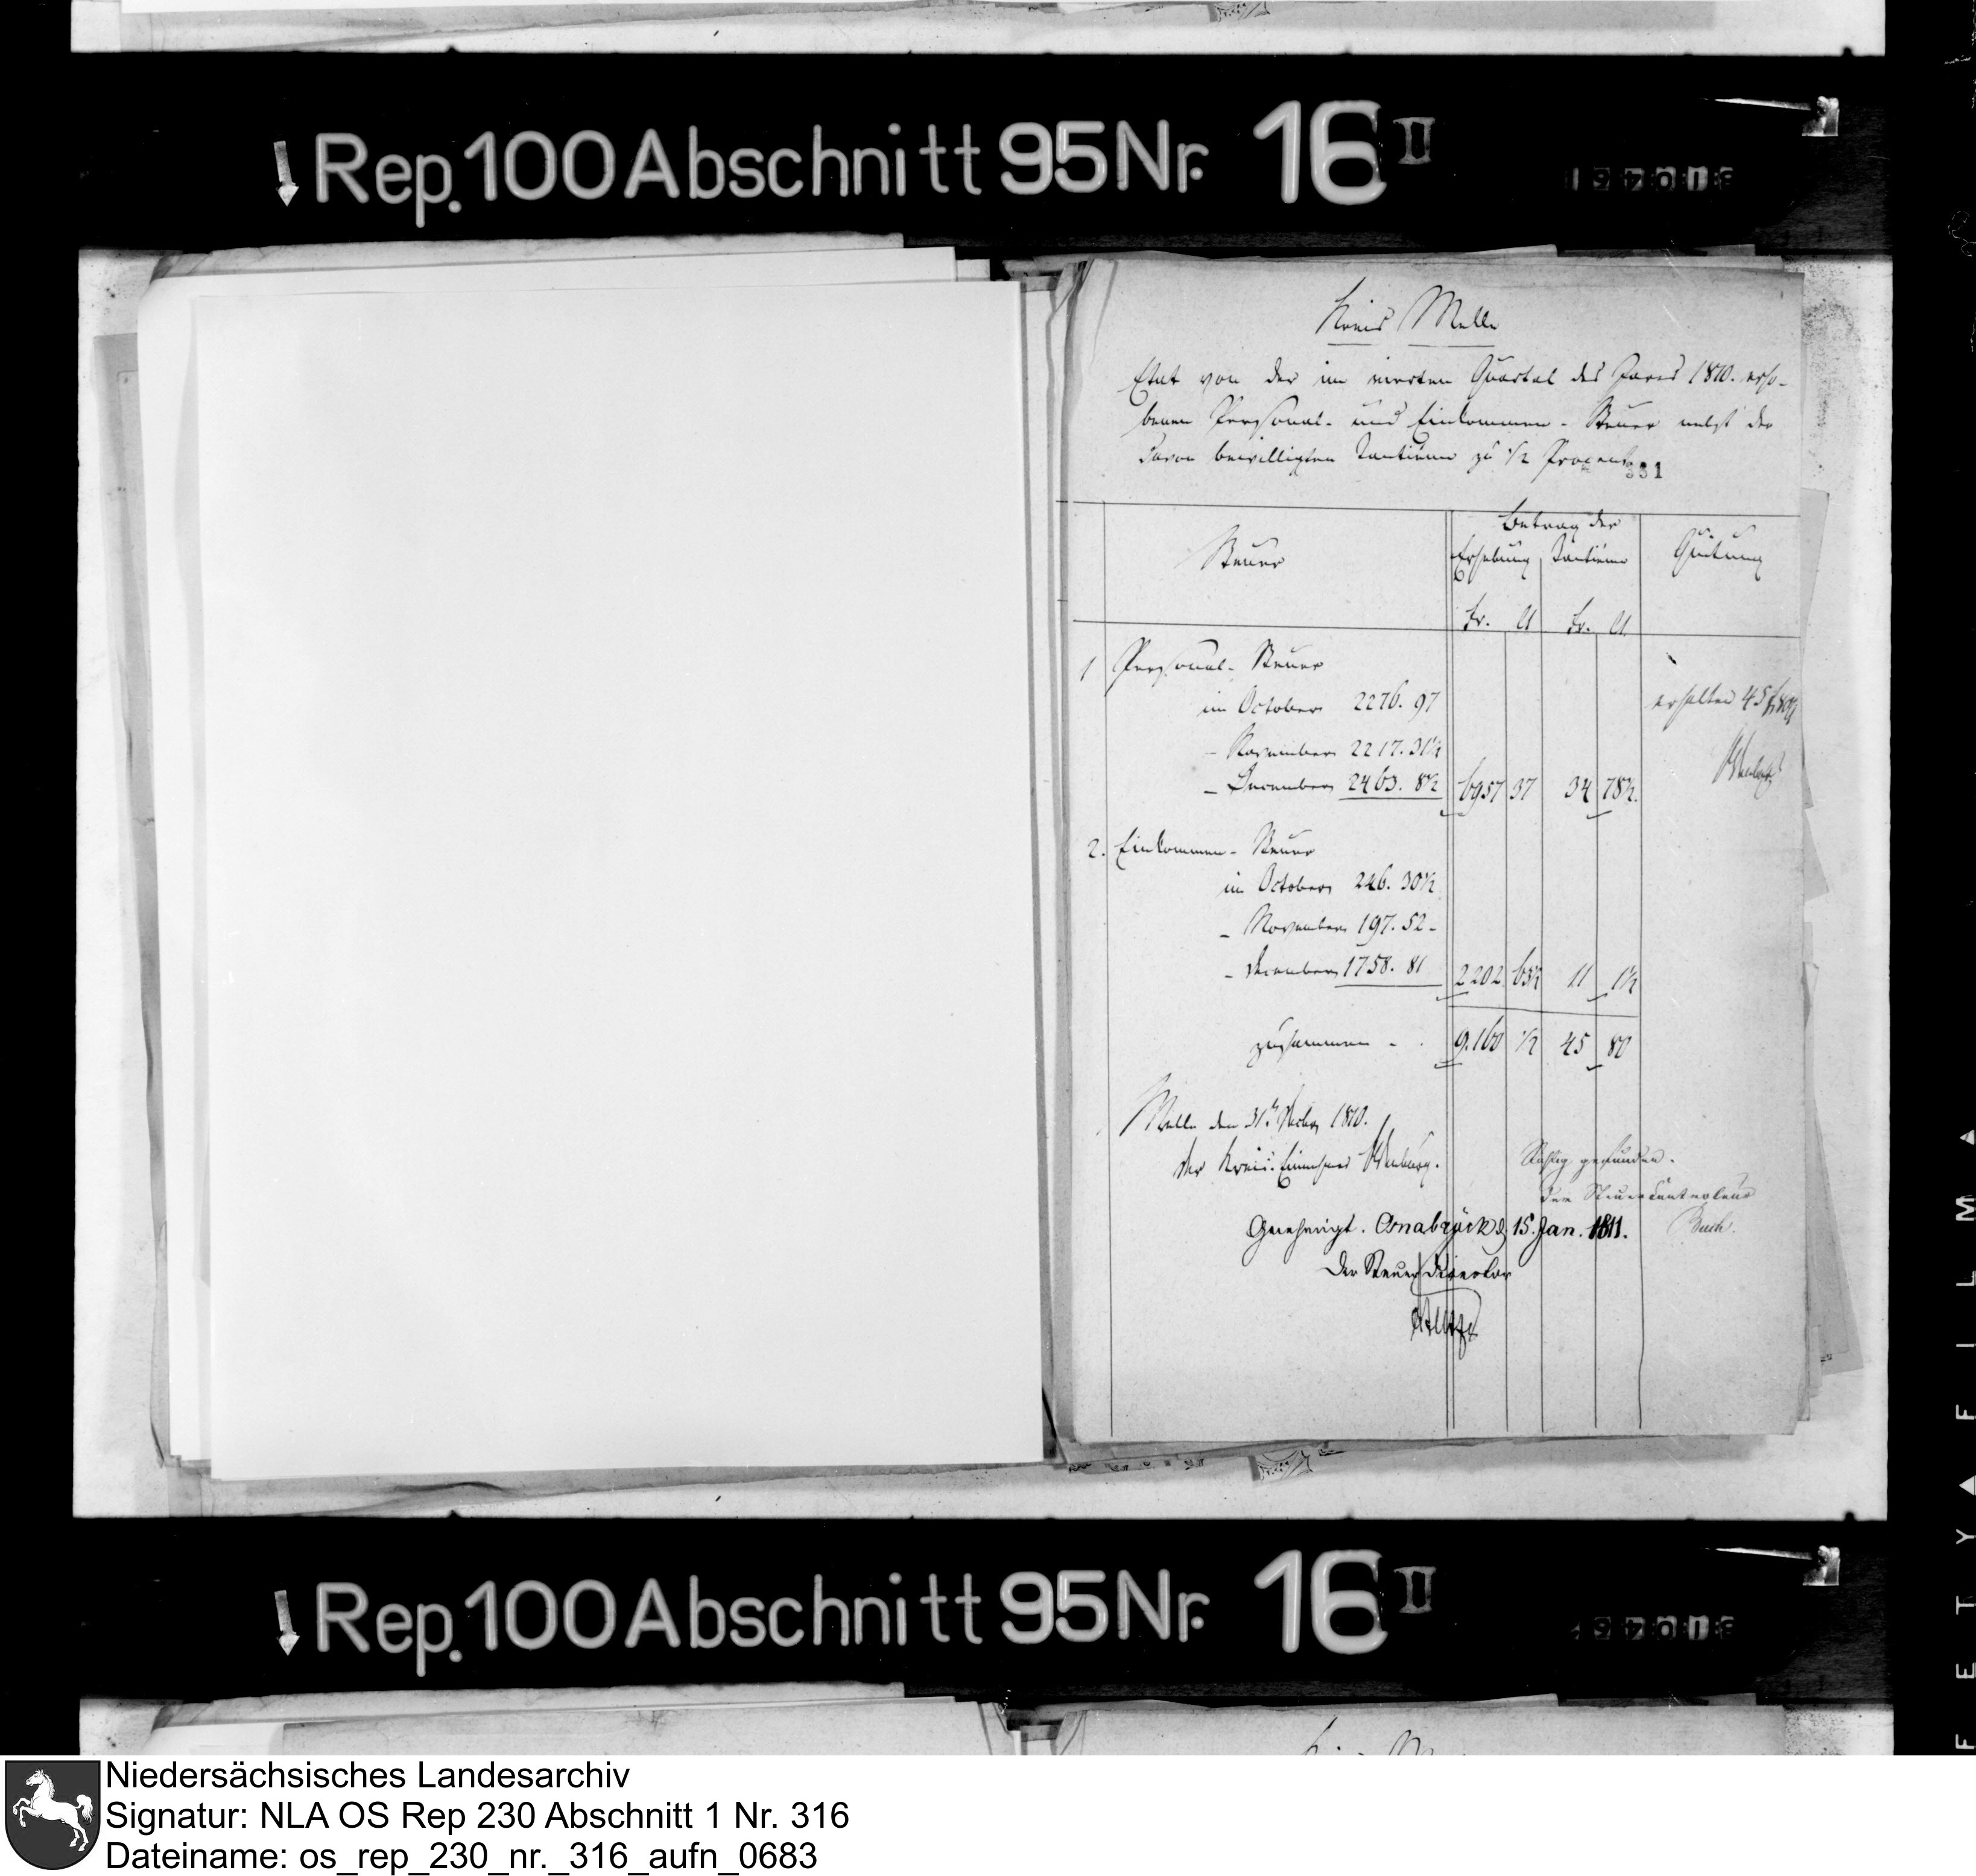 Rep. 100 Abschnitt 95 Nr. 16 II
Kreis Melle
Etat von der im vierten Quartal des Jares 1810. erho-
benen Personal- und Einkommen-Steuer nebst der
davon bewilligten Tantieme zu 1/2 Procent
331
Betrag der
Steuer Erhebung Tantieme Quitung
Fr. Ct Fr. Ct
1 Personal-Steuer
im October 2276. 97 erhalten 45 fr 80
- November 2217. 31 1/2
- December 2463. 8 1/2 6957 37 34 78 1/2
Oldenburg
2. Einkommen-Steuer
im October 246. 30 1/2
- November 197. 52 -
- December 1758. 81 2202 63 1/2 11 1 1/2
zusammen - . 9.160 1/2 45 80
Melle den 31t Decbr 1810.
der Kreis-Einnehmer Oldenburg.
Richtig gefunden.
Der Steuer Controleur
Buch.
Genehmigt. Osnabrück d 15. Jan. 1811.
Der Steuer Director
Rep. 100 Abschnitt 95 Nr. 16 II
Niedersächsisches Landesarchiv
Signatur: NLA OS Rep 230 Abschnitt 1 Nr. 316
Dateiname: os_rep_230_nr._316_aufn_0683